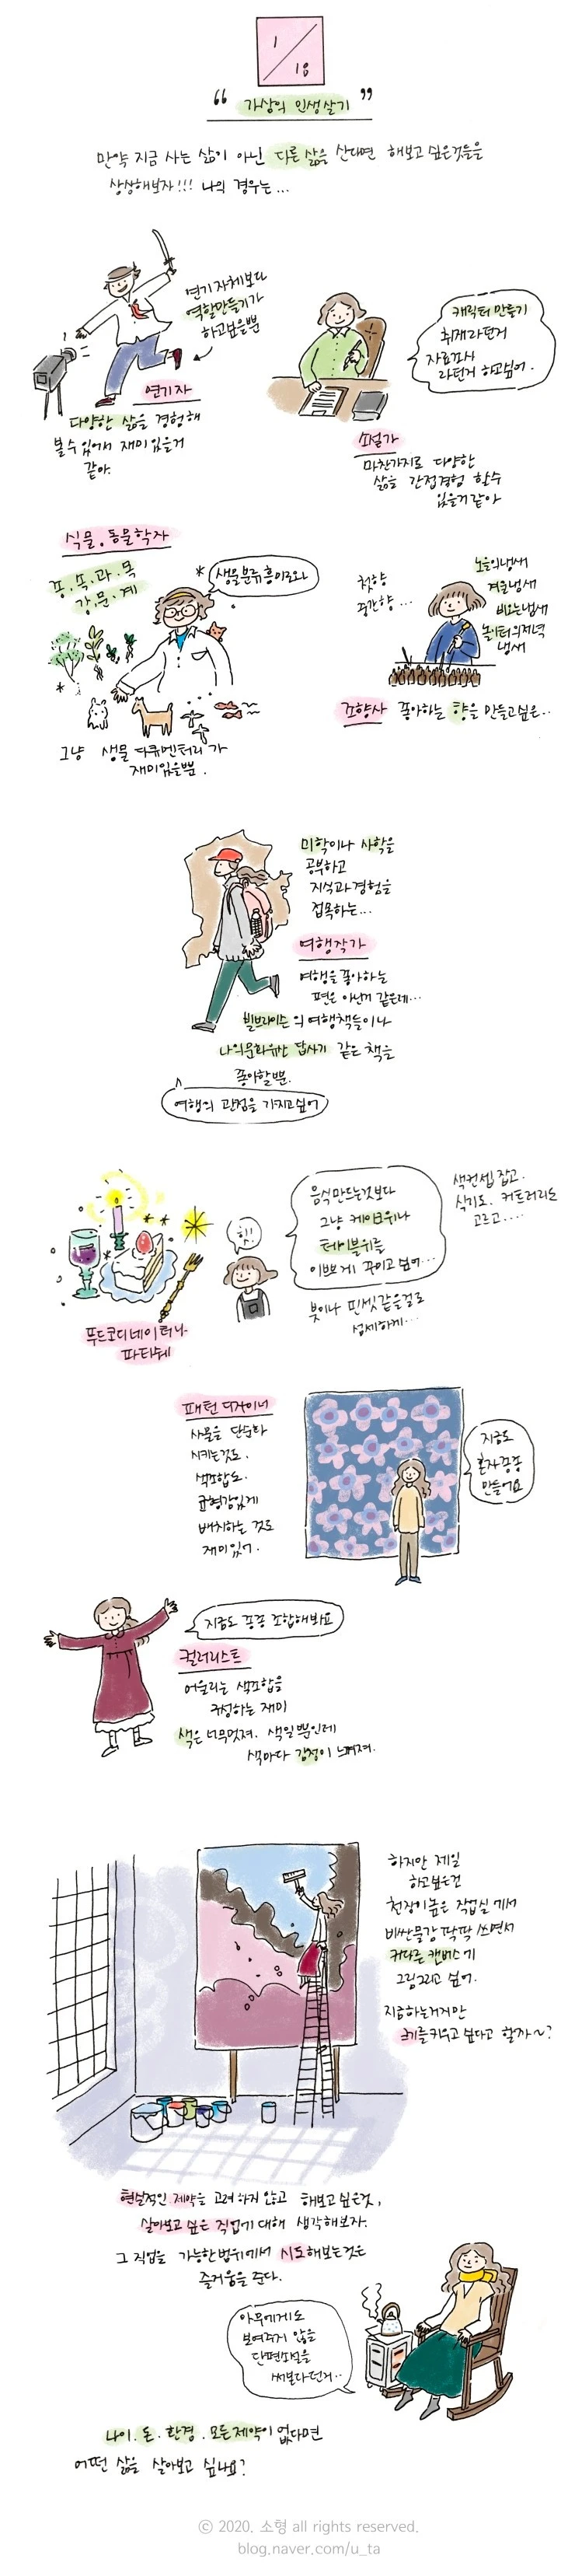 1
18
“ 가상의 인생살기 ”
만약 지금 사는 삶이 아닌 다른 삶을 산다면 해보고 싶은것들을
상상해보자!!! 나의 경우는...
연기 자체보다
역할만들기가
하고싶을뿐
연기자
다양한 삶을 경험해
볼수있어서 재미있을거
같아.
캐릭터 만들기
취재라던거
자료조사
라던거 하고싶어.
소설가
마찬가지로 다양한
삶을 간접경험 할수
있을거같아
식물.동물학자
종.속.과.목
강.문.계
* 생물분류 흥미로와
*
그냥 생물 다큐멘터리가
재미있을뿐.
첫향
중간향...
노을의냄새
겨울냄새
비오는냄새
놀이터의저녁
냄새
조향사 좋아하는 향을 만들고싶은..
미학이나 사학을
공부하고
지식과경험을
접목하는...
여행작가
여행을 좋아하는
편은 아닌거 같은데...
빌브라이슨의 여행책들이나
나의문화유산 답사기 같은 책을
좋아할뿐.
여행의 관점을 가지고싶어
음식만드는것보다
그냥 케이크위나
테이블위를
이쁘게 꾸미고 싶어...
색컨셉 잡고.
식기도. 커트러리도
고르고....
힛!
붓이나 핀셋같은걸로
섬세하게...
푸드코디네이터나
파티쉐
패턴 디자이너
사물을 단순화
시키는것도.
색조합도.
균형감있게
배치하는 것도
재미있어.
지금도
혼자종종
만들어요
지금도 종종 조합해봐요
컬러리스트
어울리는 색조합을
구성하는 재미
색은 너무멋져. 색일뿐인데
색마다 감정이 느껴져.
하지만 제일
하고싶은건
천장이높은 작업실에서
비싼물감 팍팍 쓰면서
커다란 캔버스에
그림그리고 싶어.
지금하는거지만
크기를키우고 싶다고 할까~?
현실적인 제약을 고려하지 않고 해보고 싶은것,
살아보고 싶은 직업에 대해 생각해보자.
그 직업을 가능한범위에서 시도해보는것은
즐거움을 준다.
아무에게도
보여주지 않을
단편소설을
써본다던거..
나이.돈.환경.모든제약이 없다면
어떤 삶을 살아보고 싶나요?
ⓒ 2020. 소형 all rights reserved.
blog.naver.com/u_ta